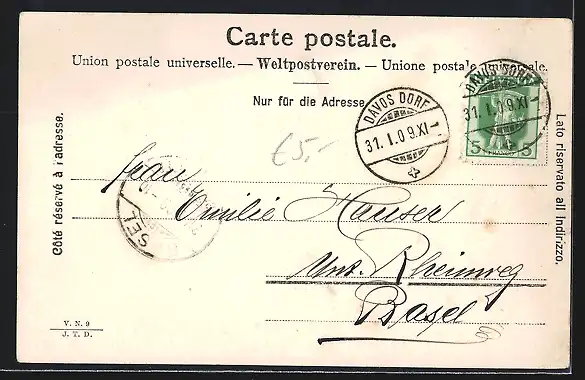 Carte postale.
Union postale universelle. — Weltpostverein. — Unione postale universale.
Nur für die Adresse
DAVOS DORF
31. I. 09. XI
DAVOS DORF
31. I. 09. XI
5 5
€5.-
Côté réservé à l'adresse.
Lato riservato all Indirizzo.
Frau
Emilie Hauser
Unt. Rheinweg
Basel
V. N. 9
J. T. D.